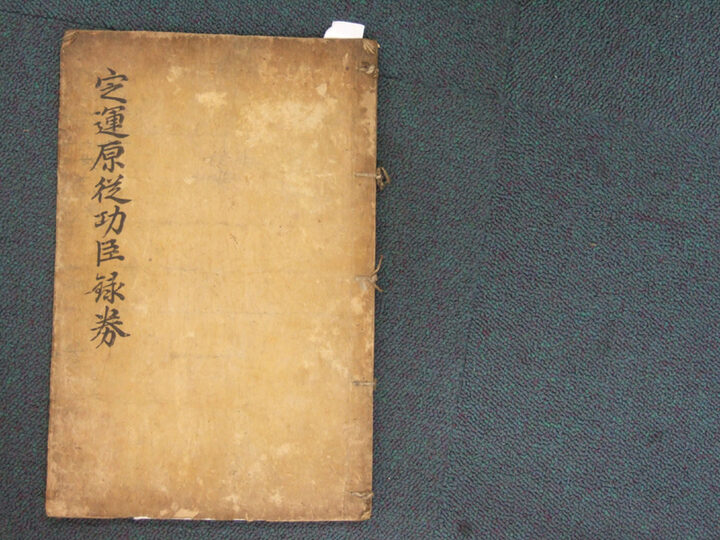 定運原從功臣録券